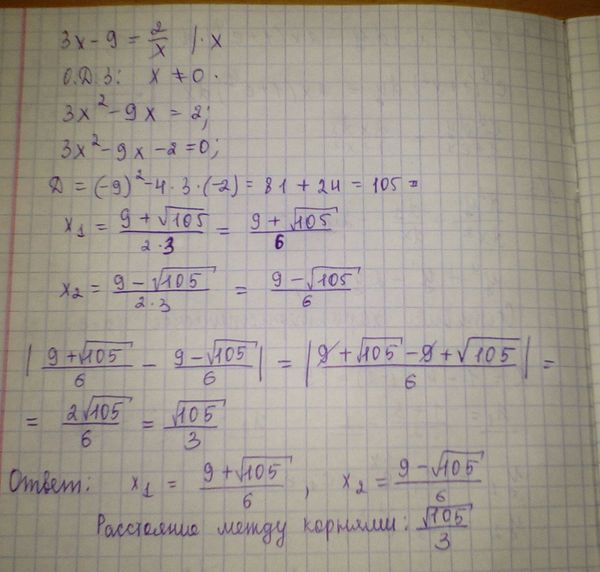 3x - 9 = 2/x | · x
О.Д.З: x ≠ 0.
3x² - 9x = 2;
3x² - 9x - 2 = 0;
Д = (-9)² - 4 · 3 · (-2) = 81 + 24 = 105 =
x₁ = (9 + √105)/(2 · 3) = (9 + √105)/6
x₂ = (9 - √105)/(2 · 3) = (9 - √105)/6
|(9 + √105)/6 - (9 - √105)/6| = |(9 + √105 - 9 + √105)/6| =
= 2√105/6 = √105/3
Ответ: x₁ = (9 + √105)/6, x₂ = (9 - √105)/6
Расстояние между корнями: √105/3